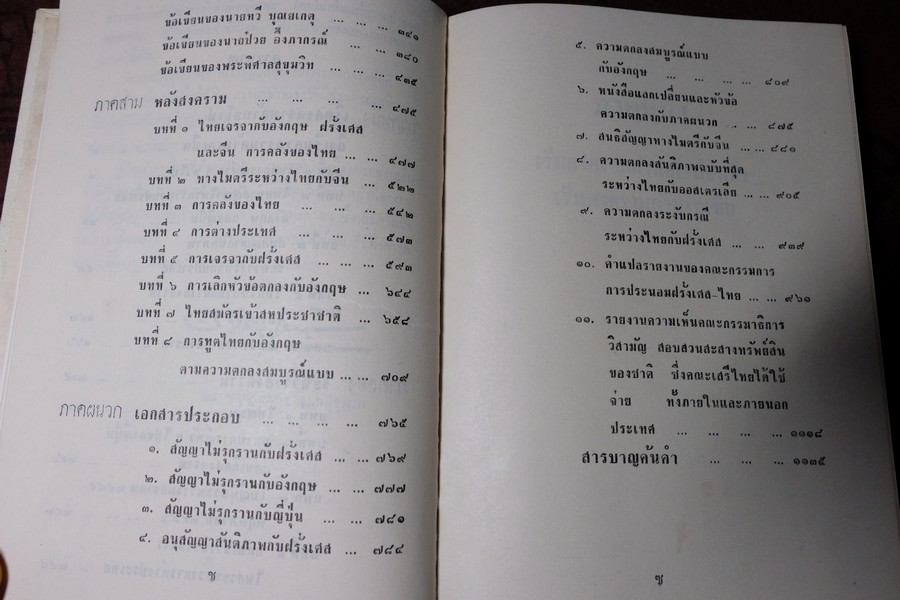 ข้อเขียนของนายทวี บุณยเกตุ ... ... ๓๔๐
ข้อเขียนของนายป๋วย อึ๊งภากรณ์ ... ... ๓๘๐
ข้อเขียนของพระพิศาลสุขุมวิท ... ... ... ๔๓๕
ภาคสาม หลังสงคราม ... ... ... ... ๔๗๕
บทที่ ๑ ไทยเจรจากับอังกฤษ ฝรั่งเศส
และจีน การคลังของไทย ... ... ๔๗๗
บทที่ ๒ ทางไมตรีระหว่างไทยกับจีน ... ๕๒๒
บทที่ ๓ การคลังของไทย ... ... ... ๕๔๒
บทที่ ๔ การต่างประเทศ ... ... ... ๕๗๓
บทที่ ๕ การเจรจากับฝรั่งเศส ... ... ... ๕๙๓
บทที่ ๖ การเลิกหัวข้อตกลงกับอังกฤษ ... ๖๔๔
บทที่ ๗ ไทยสมัครเข้าสหประชาชาติ ... ๖๕๘
บทที่ ๘ การทูตไทยกับอังกฤษ
ตามความตกลงสมบูรณ์แบบ ... ... ๗๐๙
ภาคผนวก เอกสารประกอบ ... ... ... ... ๗๖๕
๑. สัญญาไม่รุกรานกับฝรั่งเศส ... ... ๗๖๙
๒. สัญญาไม่รุกรานกับอังกฤษ ... ... ๗๗๗
๓. สัญญาไม่รุกรานกับญี่ปุ่น ... ... ๗๘๑
๔. อนุสัญญาสันติภาพกับฝรั่งเศส ... ๗๘๔
ช
๕. ความตกลงสมบูรณ์แบบ
กับอังกฤษ ... ... ... ... ๘๐๙
๖. หนังสือแลกเปลี่ยนและหัวข้อ
ความตกลงกับภาคผนวก .. ... ๘๗๕
๗. สนธิสัญญาทางไมตรีกับจีน ... ... ๘๘๑
๘. ความตกลงสันติภาพฉบับที่สุด
ระหว่างไทยกับออสเตรเลีย ... ๙๐๕
๙. ความตกลงระงับกรณี
ระหว่างไทยกับฝรั่งเศส ... ... ๙๓๙
๑๐. คำแปลรายงานของคณะกรรมการ
การประนอมฝรั่งเศส-ไทย ... ... ๙๖๑
๑๑. รายงานความเห็นคณะกรรมาธิการ
วิสามัญ สอบสวนสะสางทรัพย์สิน
ของชาติ ซึ่งคณะเสรีไทยได้ใช้
จ่าย ทั้งภายในและภายนอก
ประเทศ ... ... ... ... ๑๑๑๘
สารบาญค้นคำ ... ... ... ๑๑๓๕
ซ